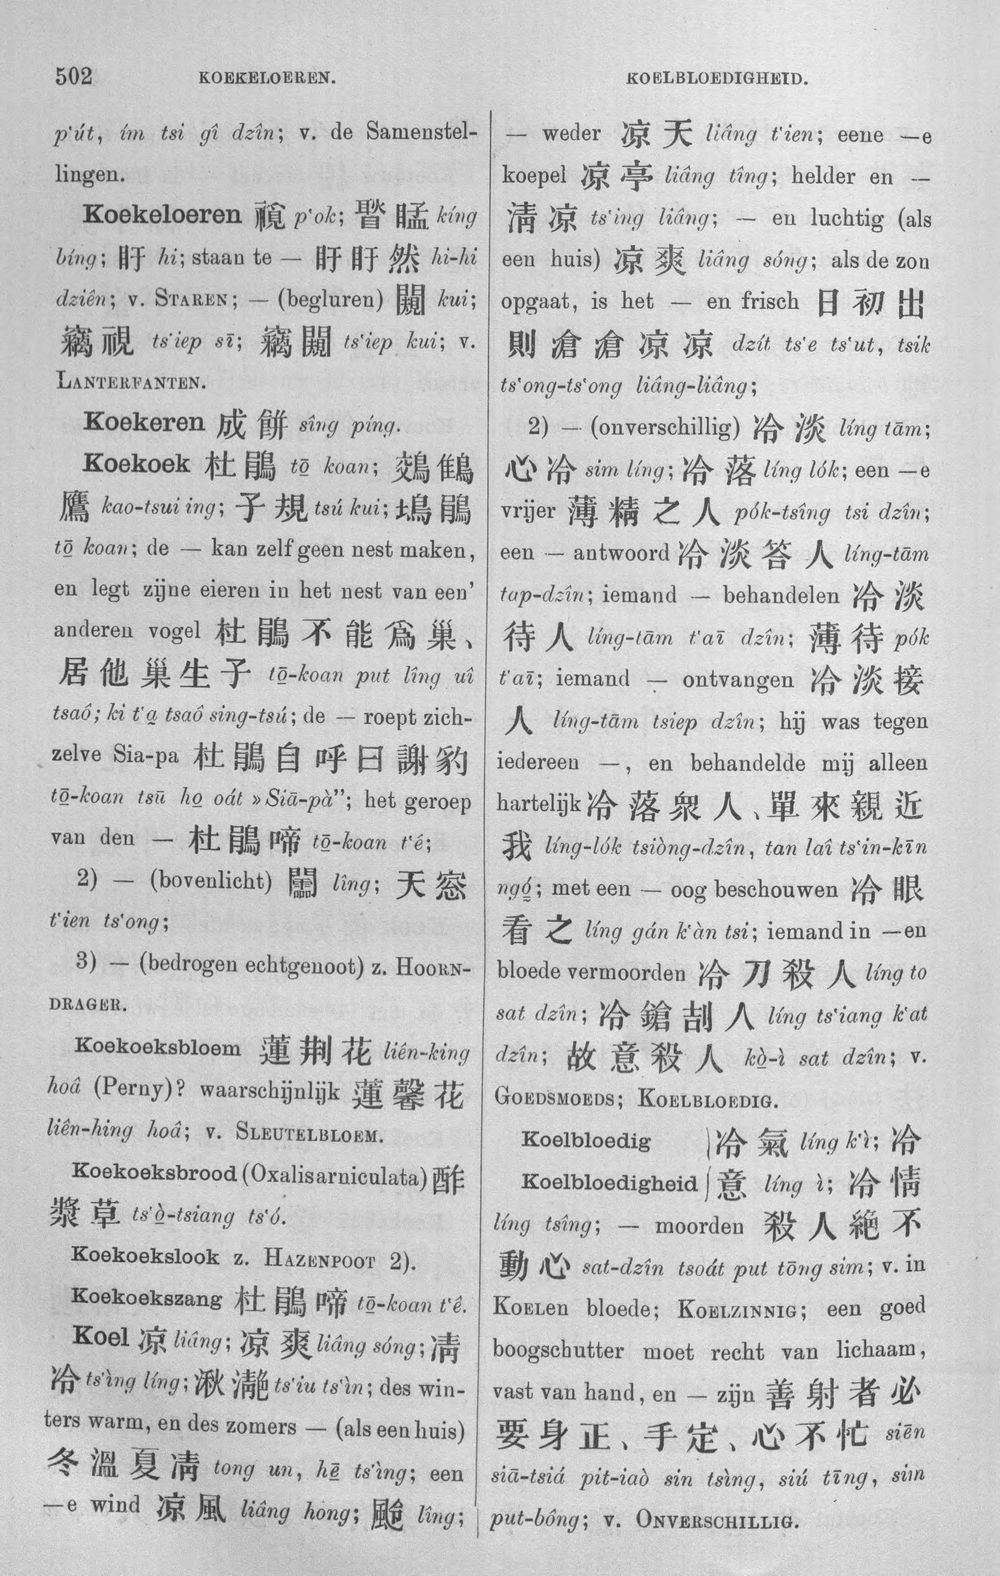 502 KOEKELOEREN. KOELBLOEDIGHEID.
pʽút, ím tsi gî dzîn; v. de Samenstel-
lingen.
Koekeloeren 覕 pʽok; 瞖 瞄 kíng
bíng; 盱 hi; staan te — 盱 盱 然 hi-hi
dziên; v. STAREN; — (begluren) 闚 kui;
竊 視 tsʽiep sī; 竊 闚 tsʽiep kui; v.
LANTERFANTEN.
Koekeren 成 餠 sîng píng.
Koekoek 杜 鵑 tō̤ koan; 鵁 鵻
鷹 kao-tsui ing; 子 規 tsú kui; 鵑
tō̤ koan; de — kan zelf geen nest maken,
en legt zijne eieren in het nest van een’
anderen vogel 杜 鵑 不 能 爲 巢、
居 他 巢 生 子 tō̤-koan put lîng uî
tsaô; ki tʽa̤ tsaô sing-tsú; de — roept zich-
zelve Sia-pa 杜 鵑 自 呼 曰 謝 豹
tō̤-koan tsū ho̤ oát »Siā-pà”; het geroep
van den — 杜 鵑 啼 tō̤-koan tʽé;
2) — (bovenlicht) lîng; 天 窓
tʽien tsʽong;
3) — (bedrogen echtgenoot) z. HOORN-
DRAGER.
Koekoeksbloem 蓮 荆 花 liên-king
hoâ (Perny)? waarschijnlijk 蓮 馨 花
liên-hing hoâ; v. SLEUTELBLOEM.
Koekoeksbrood (Oxalis arniculata) 酢
漿 草 tsʽò̤-tsiang tsʽó.
Koekoekslook z. HAZENPOOT 2).
Koekoekszang 杜 鵑 啼 tō̤-koan tʽê.
Koel 凉 liâng; 凉 爽 liâng sóng; 凊
冷 tsʽìng líng; 湫 tsʽiu tsʽìn; des win-
ters warm, en des zomers — (als een huis)
冬 溫 夏 凊 tong un, hē̤ tsʽìng; een
—e wind 凉 風 liâng hong; 颱 lîng;
— weder 凉 天 liâng tʽien; eene —e
koepel 凉 亭 liâng tîng; helder en —
清 凉 tsʽing liâng; — en luchtig (als
een huis) 凉 爽 liâng sóng; als de zon
opgaat, is het — en frisch 日 初 出
則 滄 滄 凉 凉 dzít tsʽe tsʽut, tsik
tsʽong-tsʽong liâng-liâng;
2) — (onverschillig) 冷 淡 líng tām;
心 冷 sim líng; 冷 落 líng lók; een —e
vrijer 薄 精 之 人 pók-tsîng tsi dzîn;
een — antwoord 冷 淡 答 人 líng-tām
tap-dzîn; iemand — behandelen 冷 淡
待 人 líng-tām tʽaī dzîn; 薄 待 pók
tʽaī; iemand — ontvangen 冷 淡 接
人 líng-tām tsiep dzîn; hij was tegen
iedereen —, en behandelde mij alleen
hartelijk 冷 落 衆 人、單 來 親 近
我 líng-lók tsiòng-dzîn, tan laî tsʽin-kīn
ngó̤; met een — oog beschouwen 冷 眼
看 之 líng gán kʽàn tsi; iemand in —en
bloede vermoorden 冷 刀 殺 人 líng to
sat dzîn; 冷 鎗 刮 人 líng tsʽiang kʽat
dzîn; 故 意 殺 人 kò̤-ì sat dzîn; v.
GOEDSMOEDS; KOELBLOEDIG.
Koelbloedig ) 冷 氣 líng kʽì; 冷
Koelbloedigheid ) 意 líng ì; 冷 情
líng tsîng; — moorden 殺 人 絕 不
動 心 sat-dzîn tsoát put tōng sim; v. in
KOELen bloede; KOELZINNIG; een goed
boogschutter moet recht van lichaam,
vast van hand, en — zijn 善 射 者 必
要 身 正、手 定、心 不 忙 siēn
siā-tsiá pit-iaò sin tsìng, siú tīng, sim
put-bông; v. ONVERSCHILLIG.